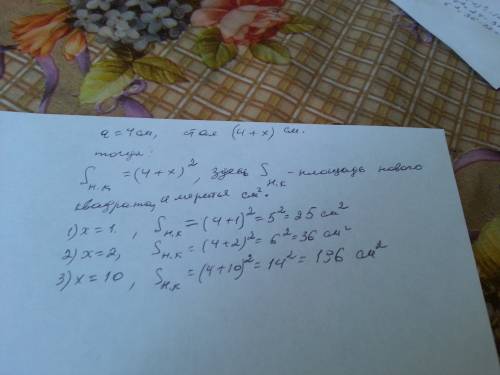 a = 4 см, стал (4+x) см.
тогда:
S н.к = (4+x)², здесь S н.к - площадь нового
квадрата, и мерется см².
1) x=1, S н.к = (4+1)² = 5² = 25 см²
2) x=2, S н.к = (4+2)² = 6² = 36 см²
3) x=10, S н.к = (4+10)² = 14² = 196 см²